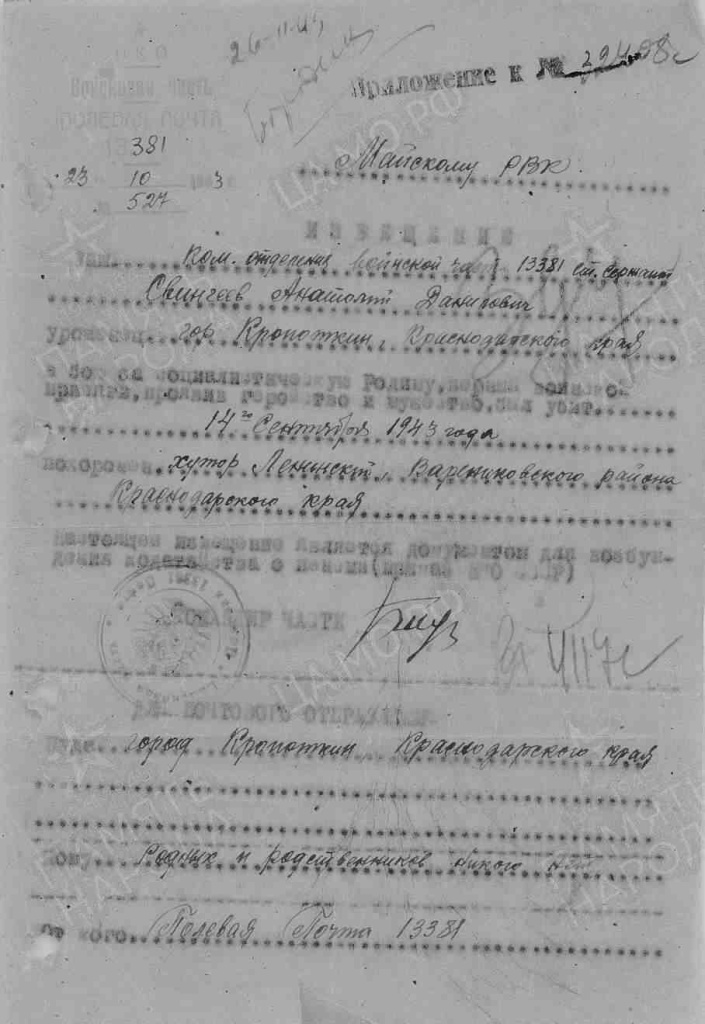 26-11-43
Приложение к № 29408с
НКО
Войсковая часть
ПОЛЕВАЯ ПОЧТА
13381
23 10 1943 г.
№ 527
Майскому РВК.
ИЗВЕЩЕНИЕ
Ваш Ком. отделения воинской част 13381 ст. сержант
Свингеев Анатолий Данилович
уроженец гор Кропоткин, Краснодарского края
в бою за социалистическую Родину, верный воинской
присяге, проявив геройство и мужество, был убит
14го Сентября 1943 года
похоронен хутор Ленинский, Варениковского района
Краснодарского края
Настоящее извещение является документом для возбуж-
дения ходатайства о пенсии (приказ НКО СССР)
КОМАНДИР ЧАСТИ
ДЛЯ ПОЧТОВОГО ОТПРАВЛЕНИЯ
Куда город Кропоткин Краснодарского края
Кому Родных и родственников никого нет
От кого Полевая Почта 13381
ЦАМО.РФ
ПАМЯТЬ
НАРОДА